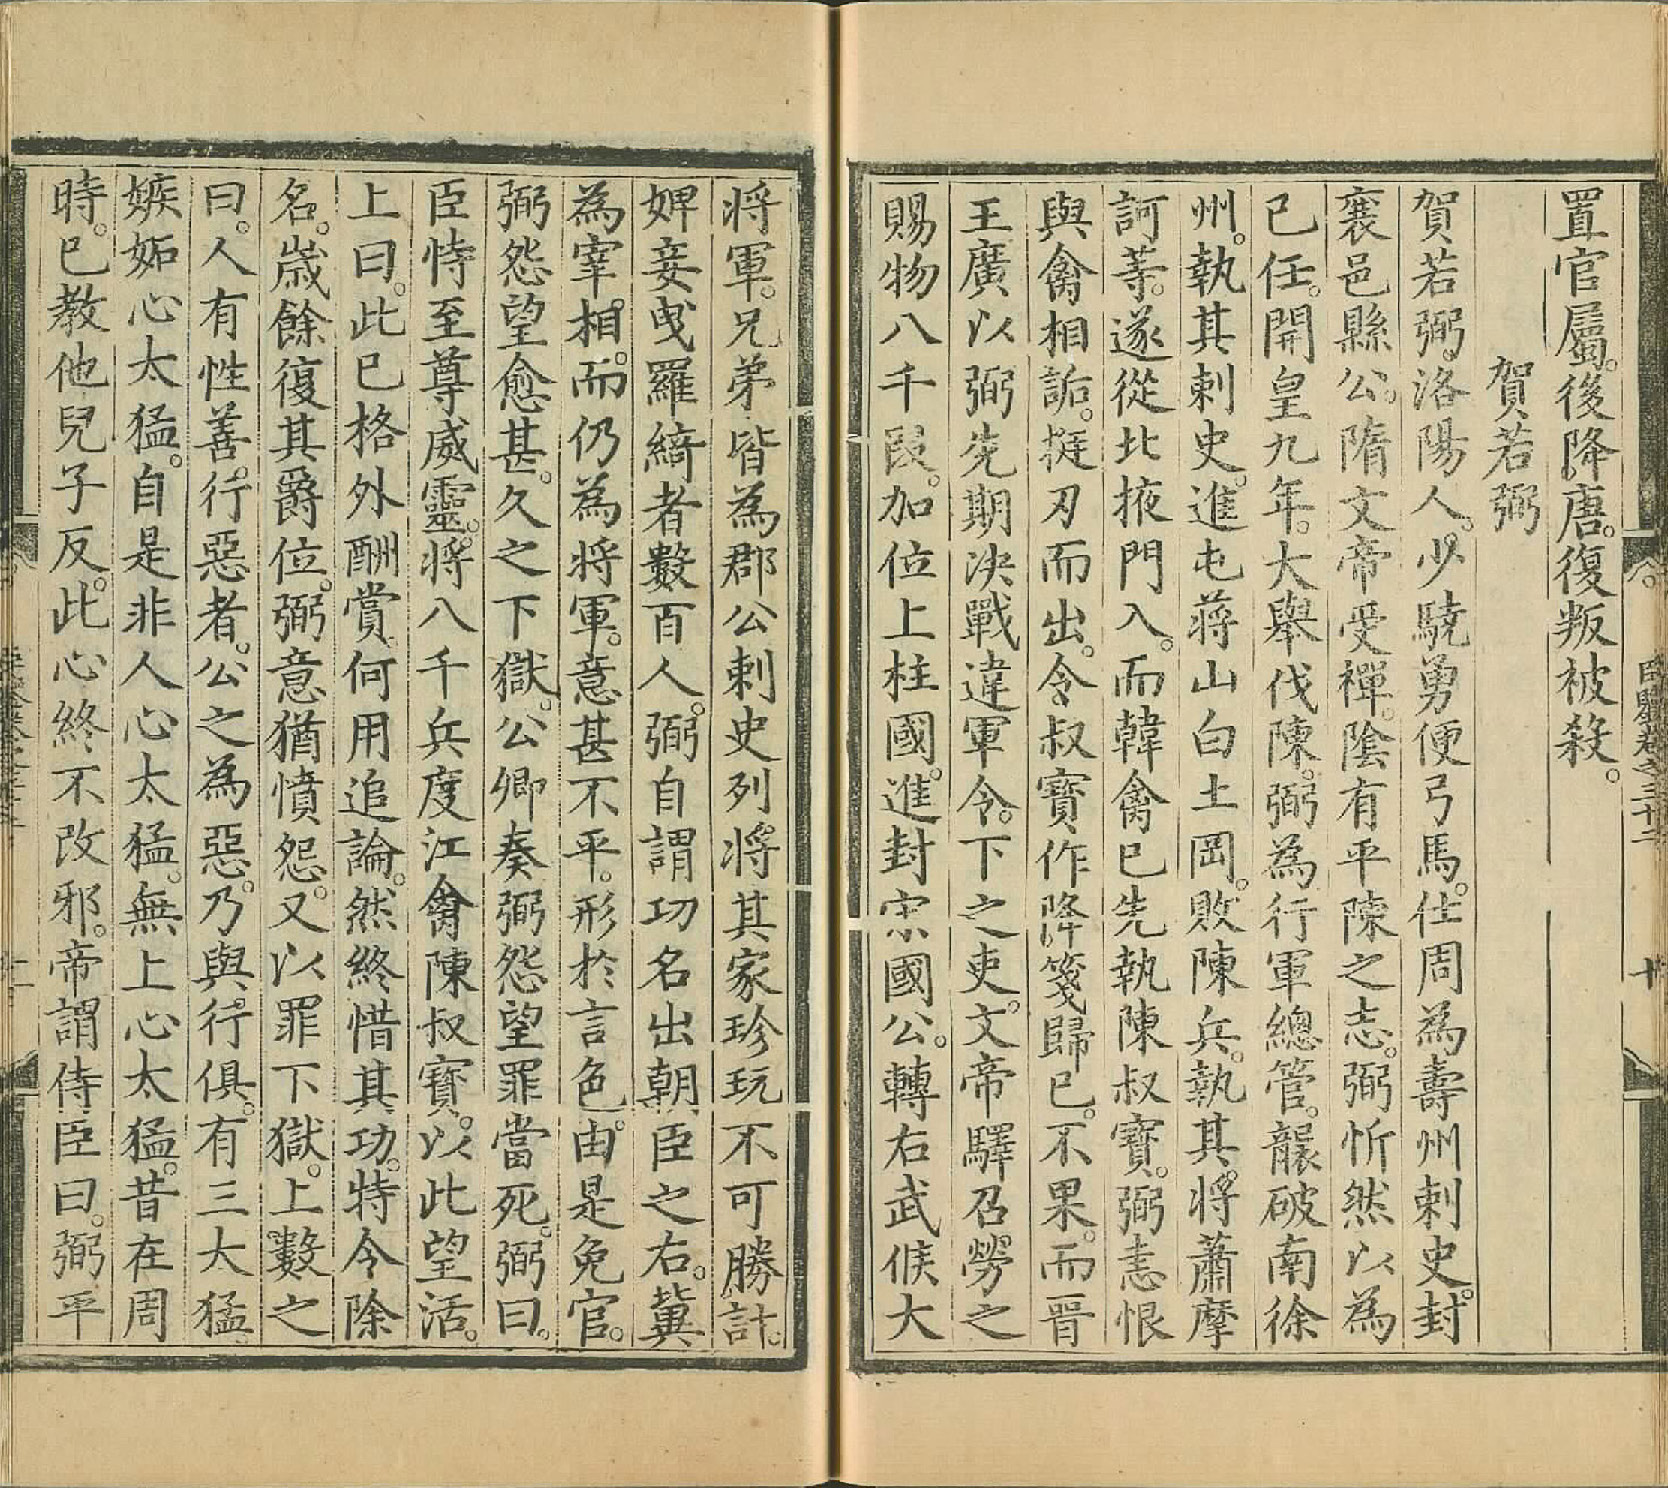 置官屬。後降唐。復叛被殺。
賀若弼
賀若弼。洛陽人。少驍勇便弓馬。仕周為壽州刺史。封
襄邑縣公。隋文帝受禪。陰有平陳之志。弼忻然以為
己任。開皇九年。大舉伐陳。弼為行軍總管。襲破南徐
州。執其刺史。進屯蔣山白土岡。敗陳兵。執其將蕭摩
訶等。遂從北掖門入。而韓禽已先執陳叔寶。弼恚恨
與禽相詬。挺刃而出。令叔寶作降箋歸已。不果。而晉
王廣以弼先期決戰違軍令。下之吏。文帝驛召。勞之
賜物八千段。加位上柱國。進封宋國公。轉右武候大
將軍。兄弟皆為郡公刺史列將其家珍玩不可勝計。
婢妾曳羅綺者數百人。弼自謂功名出朝臣之右。冀
為宰相。而仍為將軍。意甚不平。形於言色。由是免官。
弼怨望愈甚。久之下獄。公卿奏弼怨望罪當死。弼曰。
臣恃至尊威靈。將八千兵度江禽陳叔寶。以此望活。
上曰。此已格外酬賞。何用追論。然終惜其功。特令除
名。歲餘復其爵位。弼意猶憤怨。又以罪下獄。上數之
曰。人有性善。行惡者。公之為惡。乃與行俱。有三大猛。
嫉妬心太猛。自是非人心太猛。無上心太猛。昔在周
時。已教他兒子反。此心終不改邪。帝謂侍臣曰。弼平